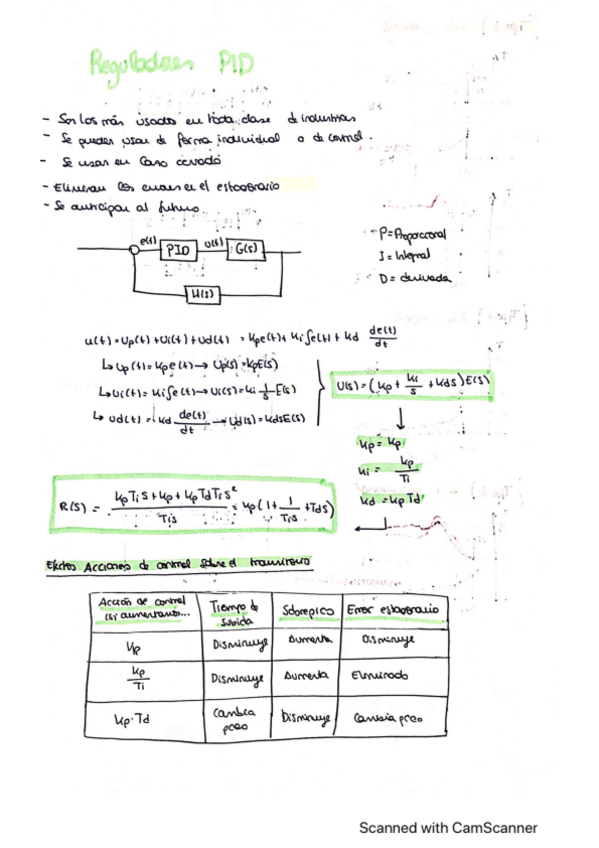 Reguladores PID
- Son los más usados en toda clase de industrias
- Se pueden usar de forma individual o de control.
- Se usan en lazo cerrado
- Eliminan los errores en el estacionario
- Se anticipan al futuro
P = Proporcional
I = Integral
D = derivada
e(t) PID u(t) G(s)
H(s)
u(t) = Up(t) + Ui(t) + Ud(t) = Kp e(t) + Ki ∫e(t) + Kd de(t)/dt
↳ Up(t) = Kp e(t) → Up(s) = Kp E(s)
↳ Ui(t) = Ki ∫e(t) → Ui(s) = Ki 1/s E(s)
↳ Ud(t) = Kd de(t)/dt → Ud(s) = Kd s E(s)
U(s) = (Kp + Ki/s + Kd s) E(s)
Kp = Kp
Ki = Kp/Ti
Kd = Kp Td
R(s) = (Kp Ti s + Kp + Kp Td Ti s²)/(Ti s) = Kp (1 + 1/(Ti s) + Td s)
Efectos Acciones de control sobre el transitorio
Acción de control (si aumentamos... | Tiempo de subida | Sobrepico | Error estacionario
Kp | Disminuye | Aumenta | Disminuye
Kp/Ti | Disminuye | Aumenta | Eliminado
Kp·Td | Cambia poco | Disminuye | Cambia poco
Scanned with CamScanner